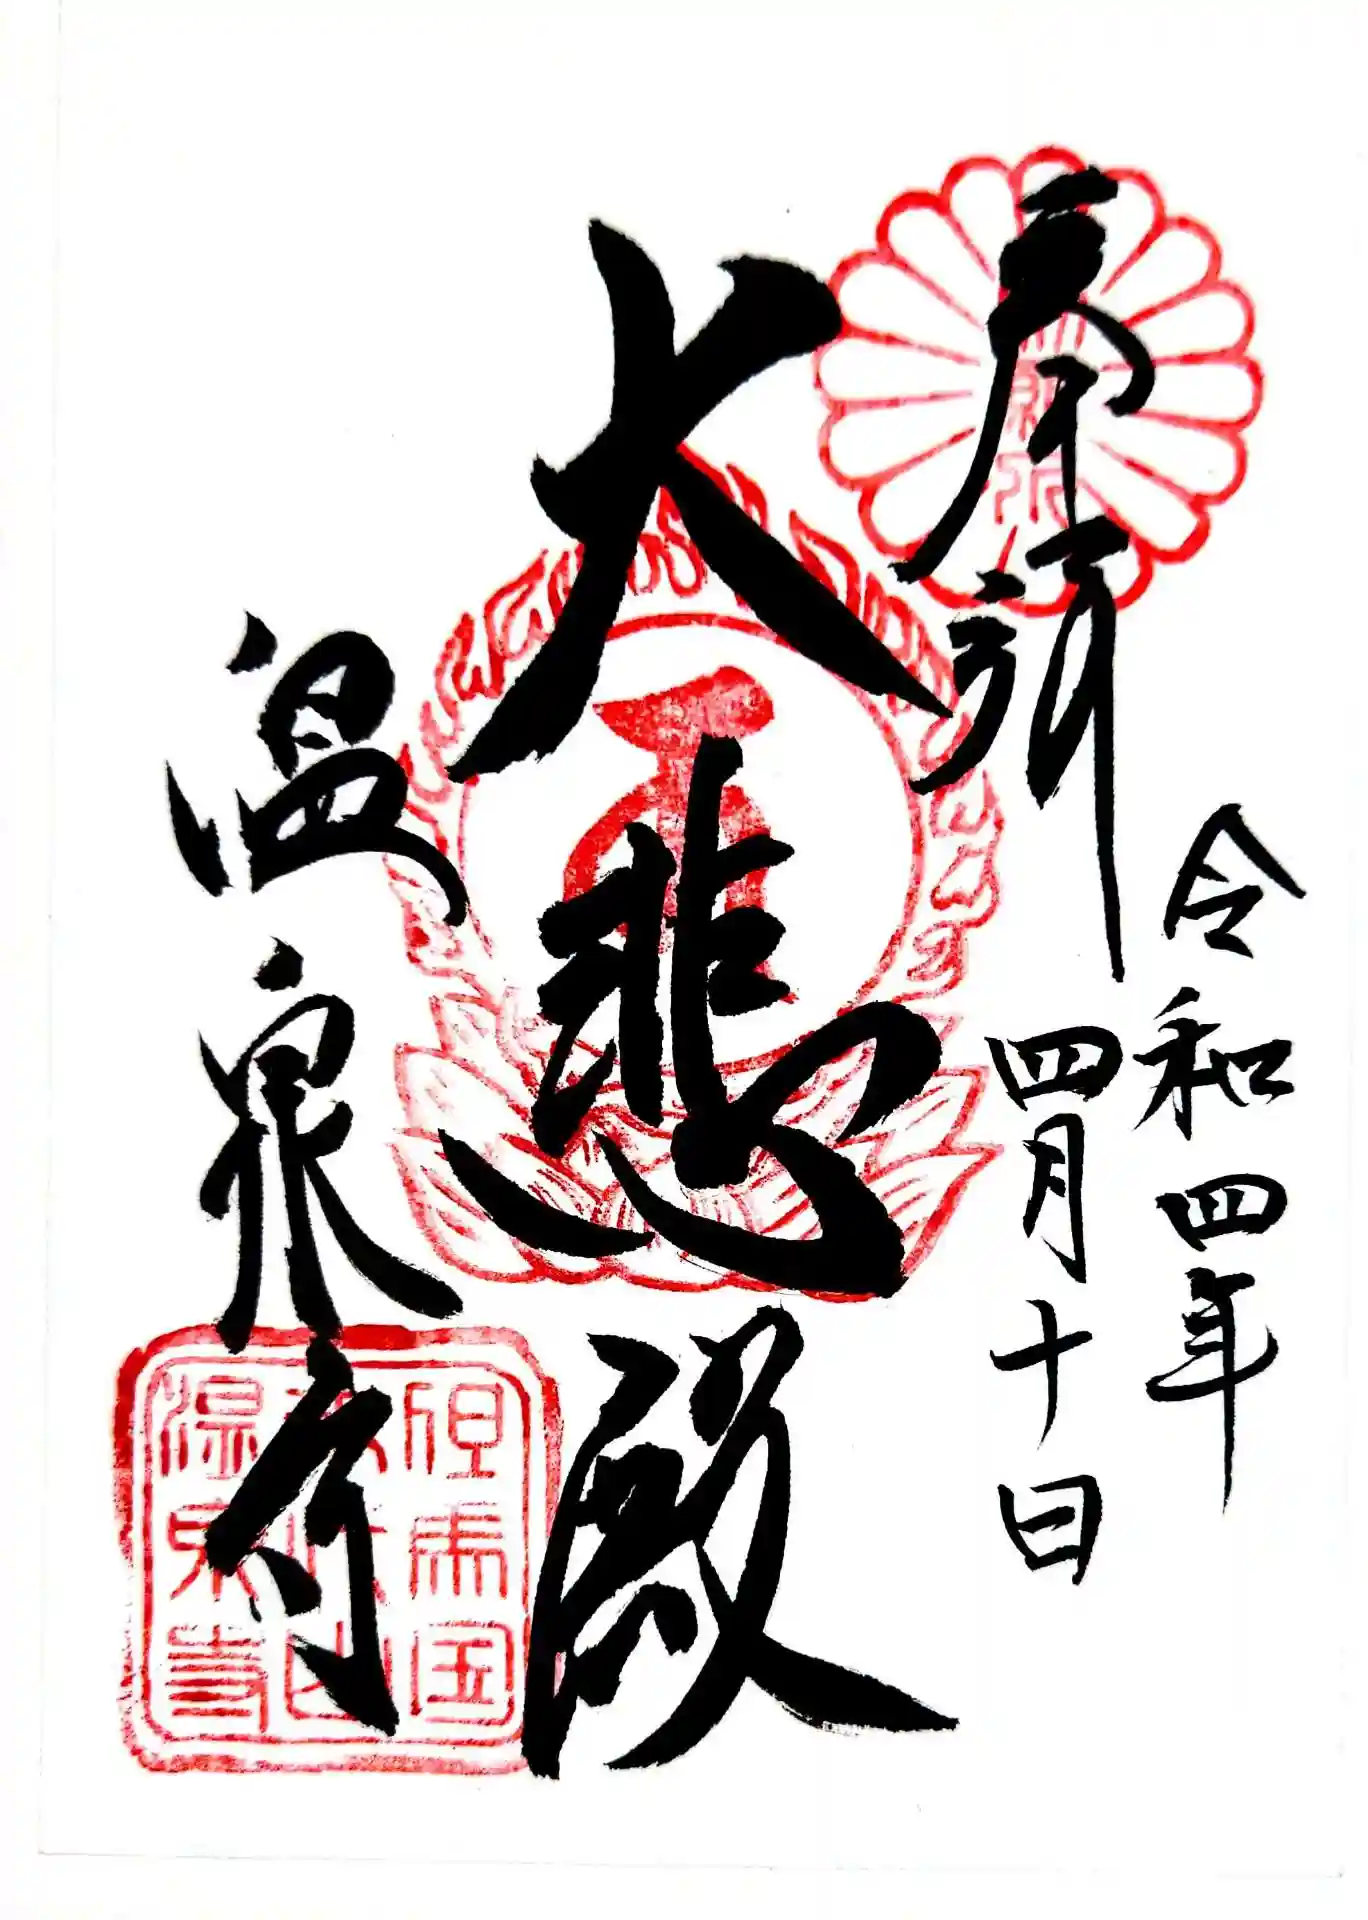 令和四年
四月十日
奉拝
大悲殿
温泉寺
但馬国
温泉寺